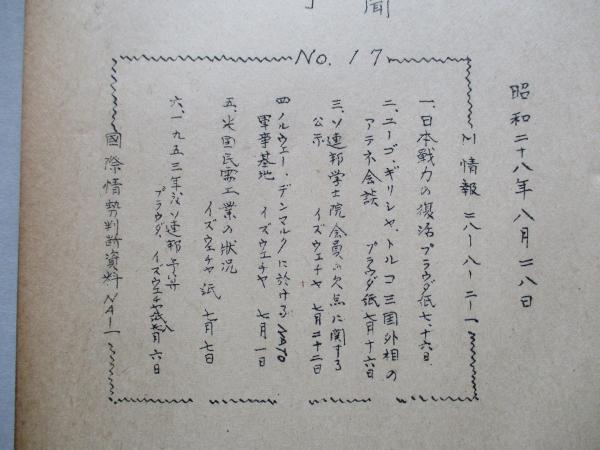 聞
No. 17
昭和二十八年八月二八日
M情報 二八・八・二一
一、日本戦力の復活 プラウダ紙七、十六日
二、ユーゴ・ギリシャ、トルコ三国外相の
アテネ会談 プラウダ紙七月十六日
三、ソ連邦学士院会員の欠点に関する
公示 イズヴェチヤ 七月二十二日
四ノルウェー・デンマルクに於ける NATO
軍事基地 イズウエチヤ 七月一日
五、米国民需工業の状況
イズウエチヤ紙 七月七日
六、一九五三年度ソ連邦予算
プラウダ、イズウエチヤ紙八月六日
國際情勢判断資料 NA1一